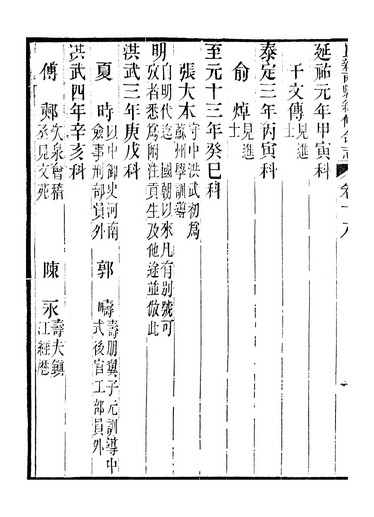 延祐元年甲寅科
干文傳見進士
泰定三年丙寅科
俞焯見進士
至元十三年癸巳科
張大木字中洪武初為蘇州學訓導
明自明代迄國朝以來凡有別號可攷者悉為附注貢生及他途並倣此
洪武三年庚戌科
夏時以中御史河南僉事刑部員外
郭疇壽朋翼子元訓導中式後官工部員外
洪武四年辛亥科
傅鄴次泉會稽丞見文苑
陳永壽夫鎮江經歷